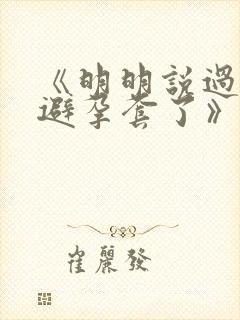 《明明説過
避孕套了》
崔麗發